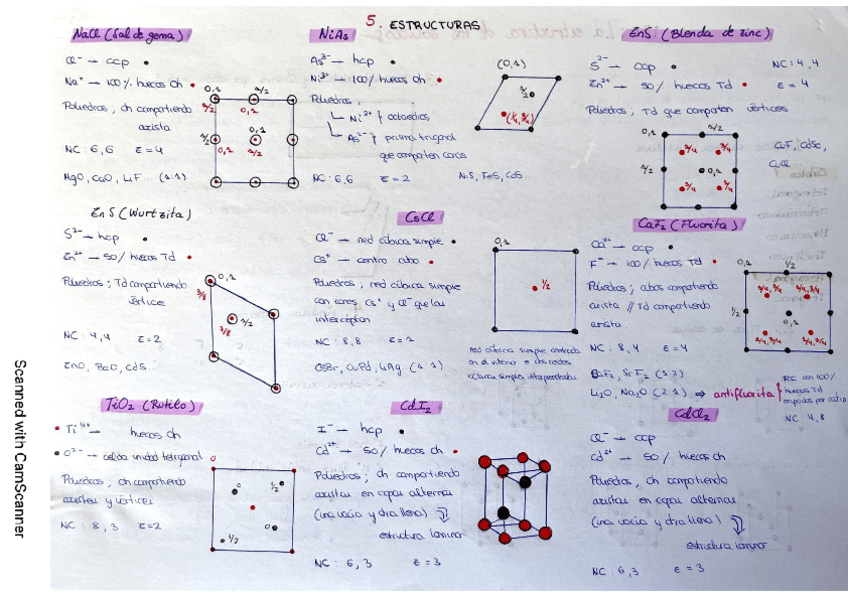 5. ESTRUCTURAS
NaCl (Sal de gema)
Cl⁻ → ccp
Na⁺ → 100% huecos Oh
Poliedros; Oh compartiendo
arista
NC: 6,6 Z=4
MgO, CaO, LiF... (1:1)
0,1 1/2
1/2 0,1
1/2 0,1
0,1 1/2
NiAs
As³⁻ → hcp
Ni³⁺ → 100% huecos Oh
Poliedros;
Ni³⁺ } octaedros
As³⁻ } prisma trigonal
que comparten caras
NC: 6,6 Z=2 NiS, FeS, CoS...
(0,1)
1/2
ZnS (Blenda de zinc)
S²⁻ → ccp
NC: 4,4
Zn²⁺ → 50% huecos Td
Z=4
Poliedros; Td que comparten vértices
0,1 1/2
3/4 3/4
1/2 0,1
3/4 3/4
CuF, CdSe,
CuCl...
ZnS (Wurtzita)
S²⁻ → hcp
Zn²⁺ → 50% huecos Td
Poliedros; Td compartiendo
vértice
NC: 4,4 Z=2
ZnO, BeO, CdS...
0,1
3/8
1/2
7/8
CsCl
Cl⁻ → red cúbica simple
Cs⁺ → centro cubo
Poliedros; red cúbica simple
con iones Cs⁺ y Cl⁻ que las
interceptan
NC: 8,8 Z=1
CsBr, CuPd, LiAg (1:1)
0,1
1/2
red cúbica simple centrada
en el interior
cúbicas simples interpenetradas
CaF₂ (Fluorita)
Ca²⁺ → ccp
F⁻ → 100% huecos Td
Poliedros; cubos compartiendo
arista // Td compartiendo
arista
NC: 8,4 Z=4
BaF₂, SrF₂ (1:2)
Li₂O, Na₂O (2:1) ⇒ antifluorita
con 100%
huecos Td
ocupados por catión
NC 4,8
0,1 1/2
1/2 0,1
TiO₂ (Rutilo)
Ti⁴⁺ → huecos Oh
O²⁻ → celda unidad tetragonal
Poliedros, Oh compartiendo
aristas y vértices
NC: 8,3 Z=2
0
0 1/2
0
1/2
CdI₂
I⁻ → hcp
Cd²⁺ → 50% huecos Oh
Poliedros; Oh compartiendo
aristas en capas alternas
(una vacía y otra llena)
estructura laminar
NC: 6,3 Z=3
CdCl₂
Cl⁻ → ccp
Cd²⁺ → 50% huecos Oh
Poliedros, Oh compartiendo
aristas en capas alternas
(una vacía y otra llena)
estructura laminar
NC: 6,3 Z=3
Scanned with CamScanner